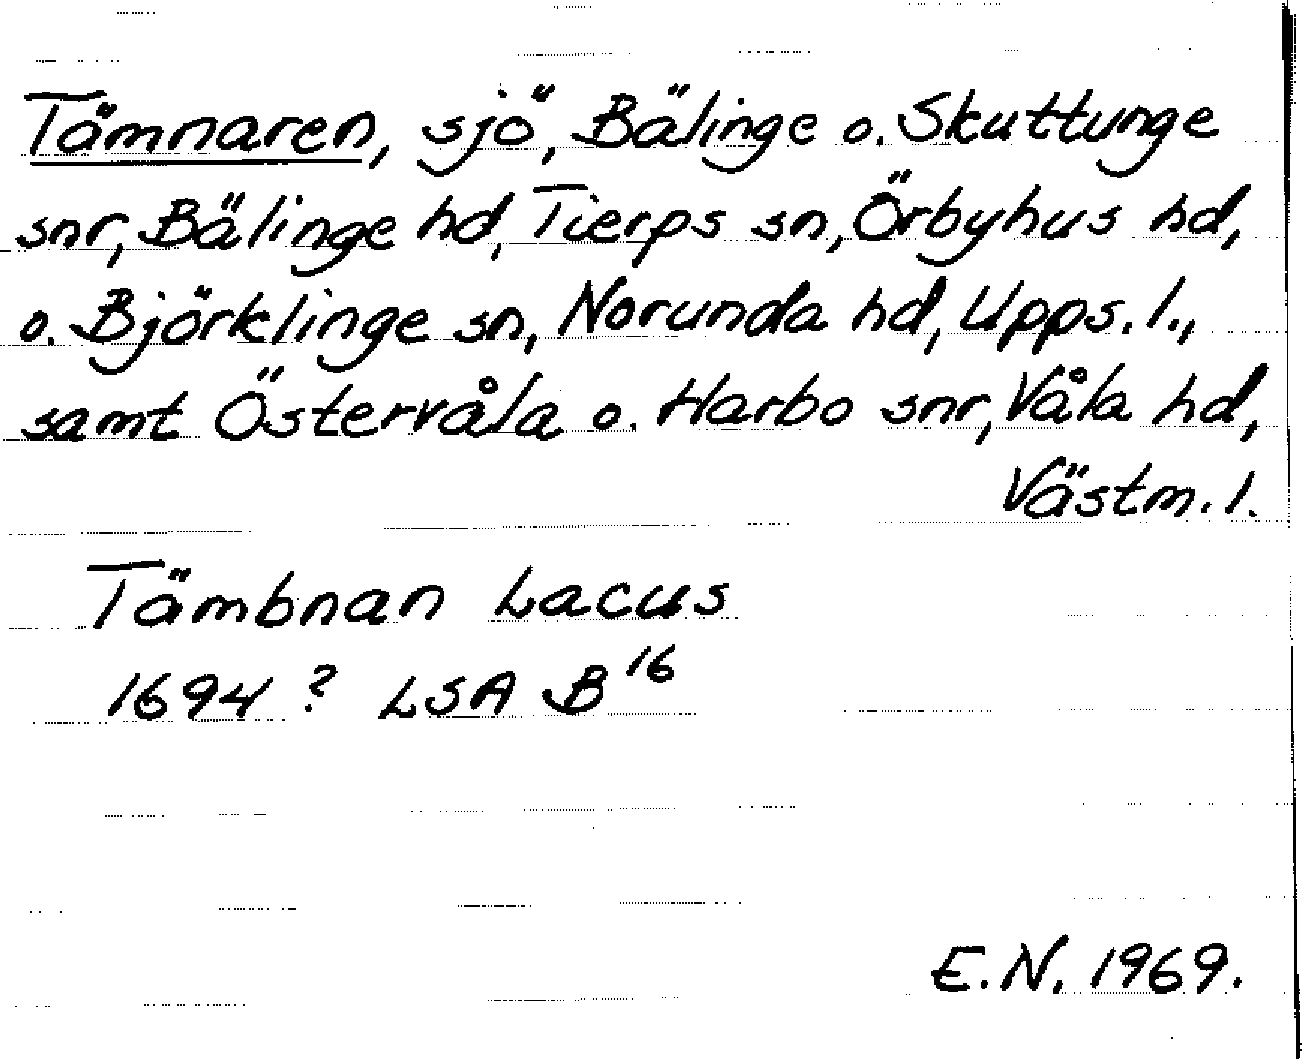 Tämnaren, sjö, Bälinge o. Skuttunge
snr, Bälinge hd, Tierps sn, Örbyhus hd,
o. Björklinge sn, Norunda hd, Upps. l.,
samt Östervåla o. Harbo snr, Våla hd,
Västm. l.
Tämbnan Lacus
1694? LSA B16
E.N. 1969.